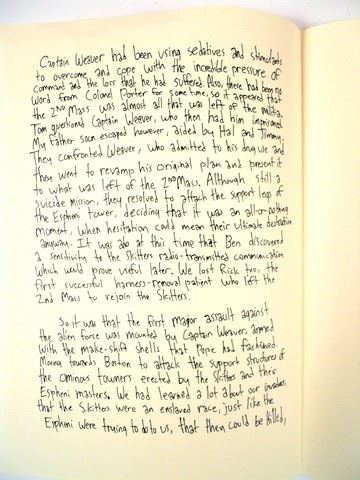 Captain Weaver had been using sedatives and stimulants
to overcome and cope with the incredible pressure of
command and the loss that he had suffered. Also, there had been no
word from Colonel Porter for some time, so it appeared that
the 2ND Mass was almost all that was left of the militia.
Tom questioned Captain Weaver, who then had him imprisoned.
My Father soon escaped however, aided by Hal and Jimmy.
They confronted Weaver, who admitted to his drug use and
they went to revamp his original plan and present it
to what was left of the 2ND Mass. Although still a
suicide mission, they resolved to attach the support legs of
the Espheni tower, deciding that it was an all-or-nothing
moment, when hesitation could mean their ultimate destruction
anyway. It was also at this time that Ben discovered
a sensitivity to the Skitters radio-transmitted communication
which would prove useful later. We lost Rick too, the
first successful harness-removal patient who left the
2nd Mass to rejoin the Skitters.
So it was that the first major assault against
the alien force was mounted by Captain Weaver, armed
with the make-shift shells that Pope had fashioned.
Moving towards Boston to attack the support structures of
the ominous towers erected by the Skitters and their
Espheni masters. We had learned a lot about our invaders:
that the Skitters were an enslaved race, just like the
Espheni were trying to do to us, that they could be killed,